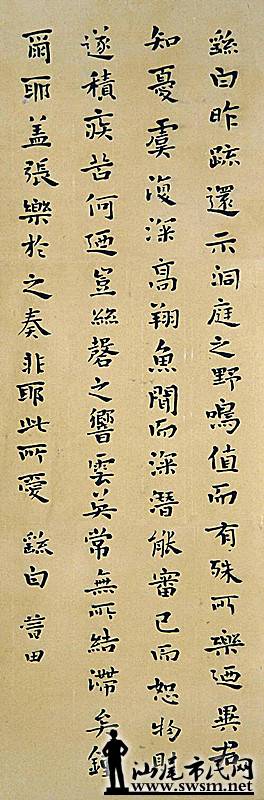 繇白昨踈還示洞庭之野鳴值而有殊所樂廼異君
知憂虞復深高翔魚聞而深潛能審己而恕物則
遂積疾苦何廼豈絲磬之響雲英常無所結滯矣鍾
爾耶蓋張樂於之奏非耶此所愛 繇白 田
汕尾市民网
www.swsm.net